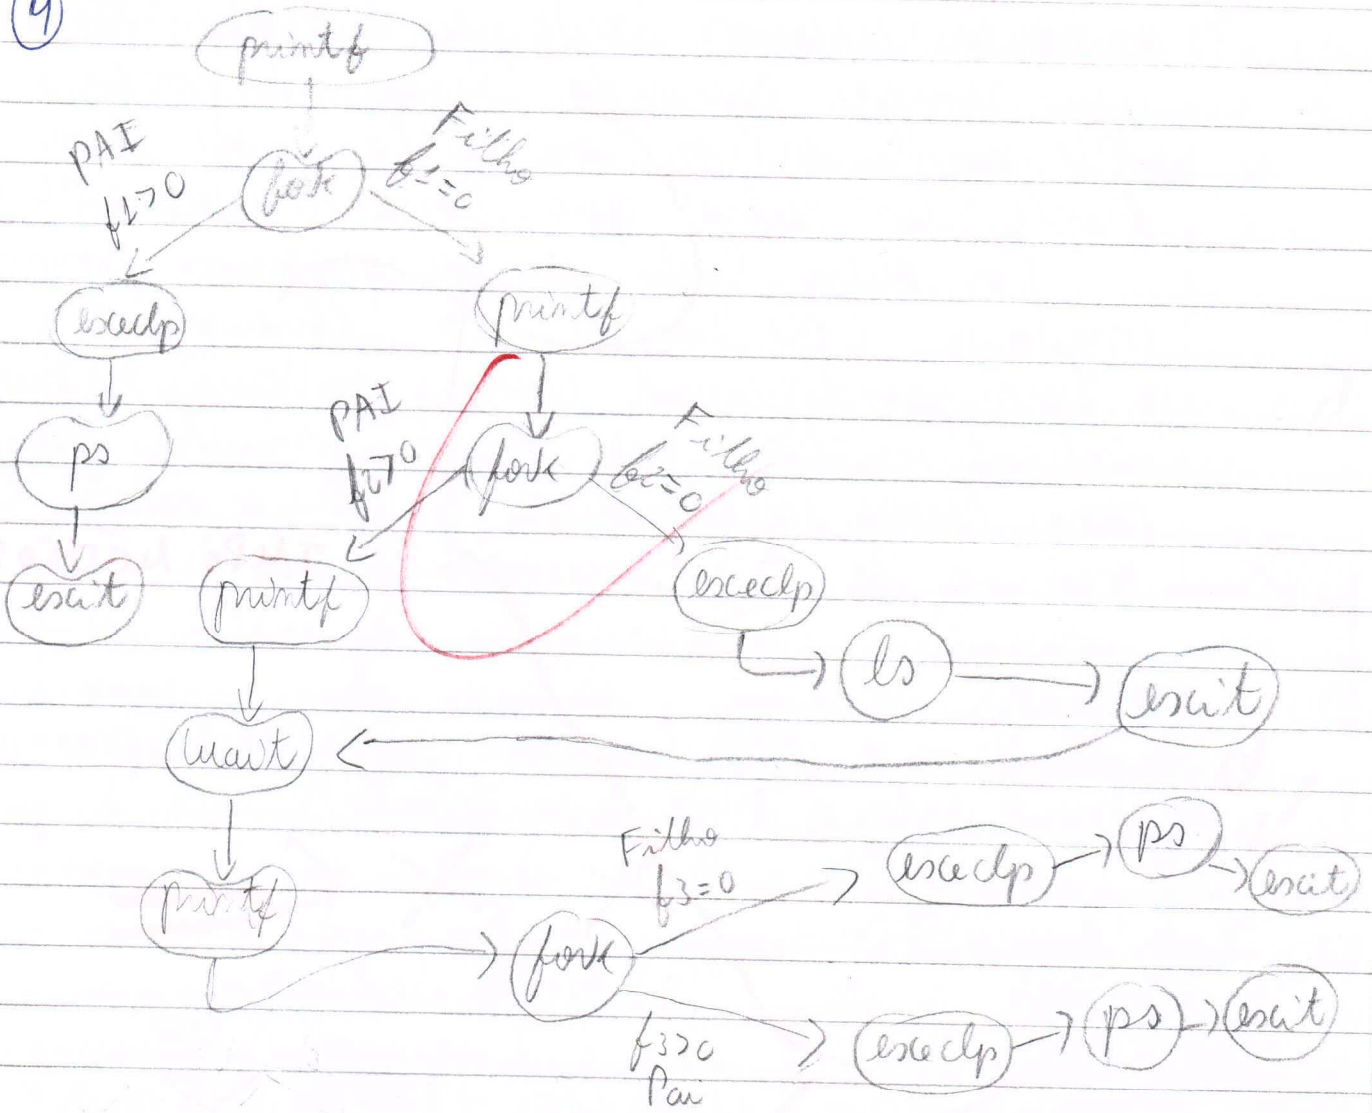 4
printf
PAI
f1>0
fork
Filho
f1=0
execlp
printf
ps
PAI
f2>0
fork
Filho
f2=0
exit
printf
execlp
ls
exit
wait
printf
Filho
f3=0
execlp
ps
exit
fork
f3>0
Pai
execlp
ps
exit